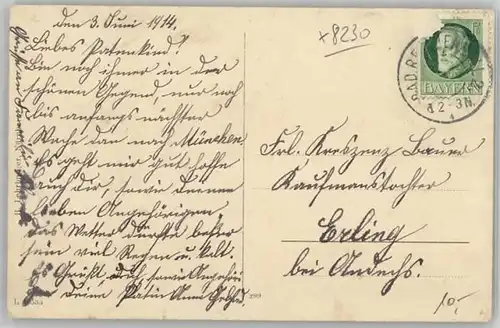 den 3. Juni 1914.
Liebes Patenkind!
Bin noch immer in der
schönen Gegend, nur noch
bis anfangs nächster
Woche dan nach München.
Es geht mir gut hoffe
auch dir, sowie deinen
lieben Angehörigen,
das Wetter dürfte besser
sein viel Regen u. kalt.
Es Grüßt dich, sowie Angehörige
Deine Patin Anna
Gruß an
x8230
BAD RE
BAYERN
8.2-3N.
Frl. Kreszenz Bauer
Kaufmanstochter
Erling
bei Andechs.
10,-
299